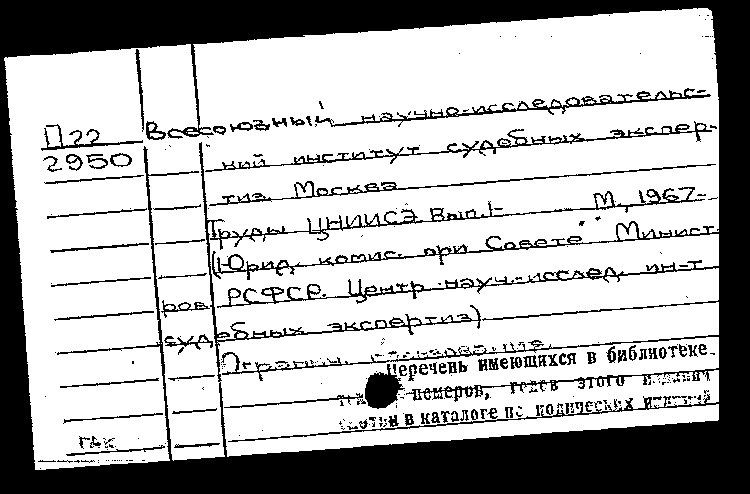 П22 Всесоюзный научно-исследовательс-
2950 кий институт судебных экспер-
тиз. Москва
Труды ЦНИИСЭ. Вып. 1- М., 1967-
(Юрид. комис. при Совете Минист-
ров РСФСР. Центр. науч.-исслед. ин-т
судебных экспертиз)
Перечень имеющихся в библиотеке
номеров, годов этого издания
в каталоге
ГАК